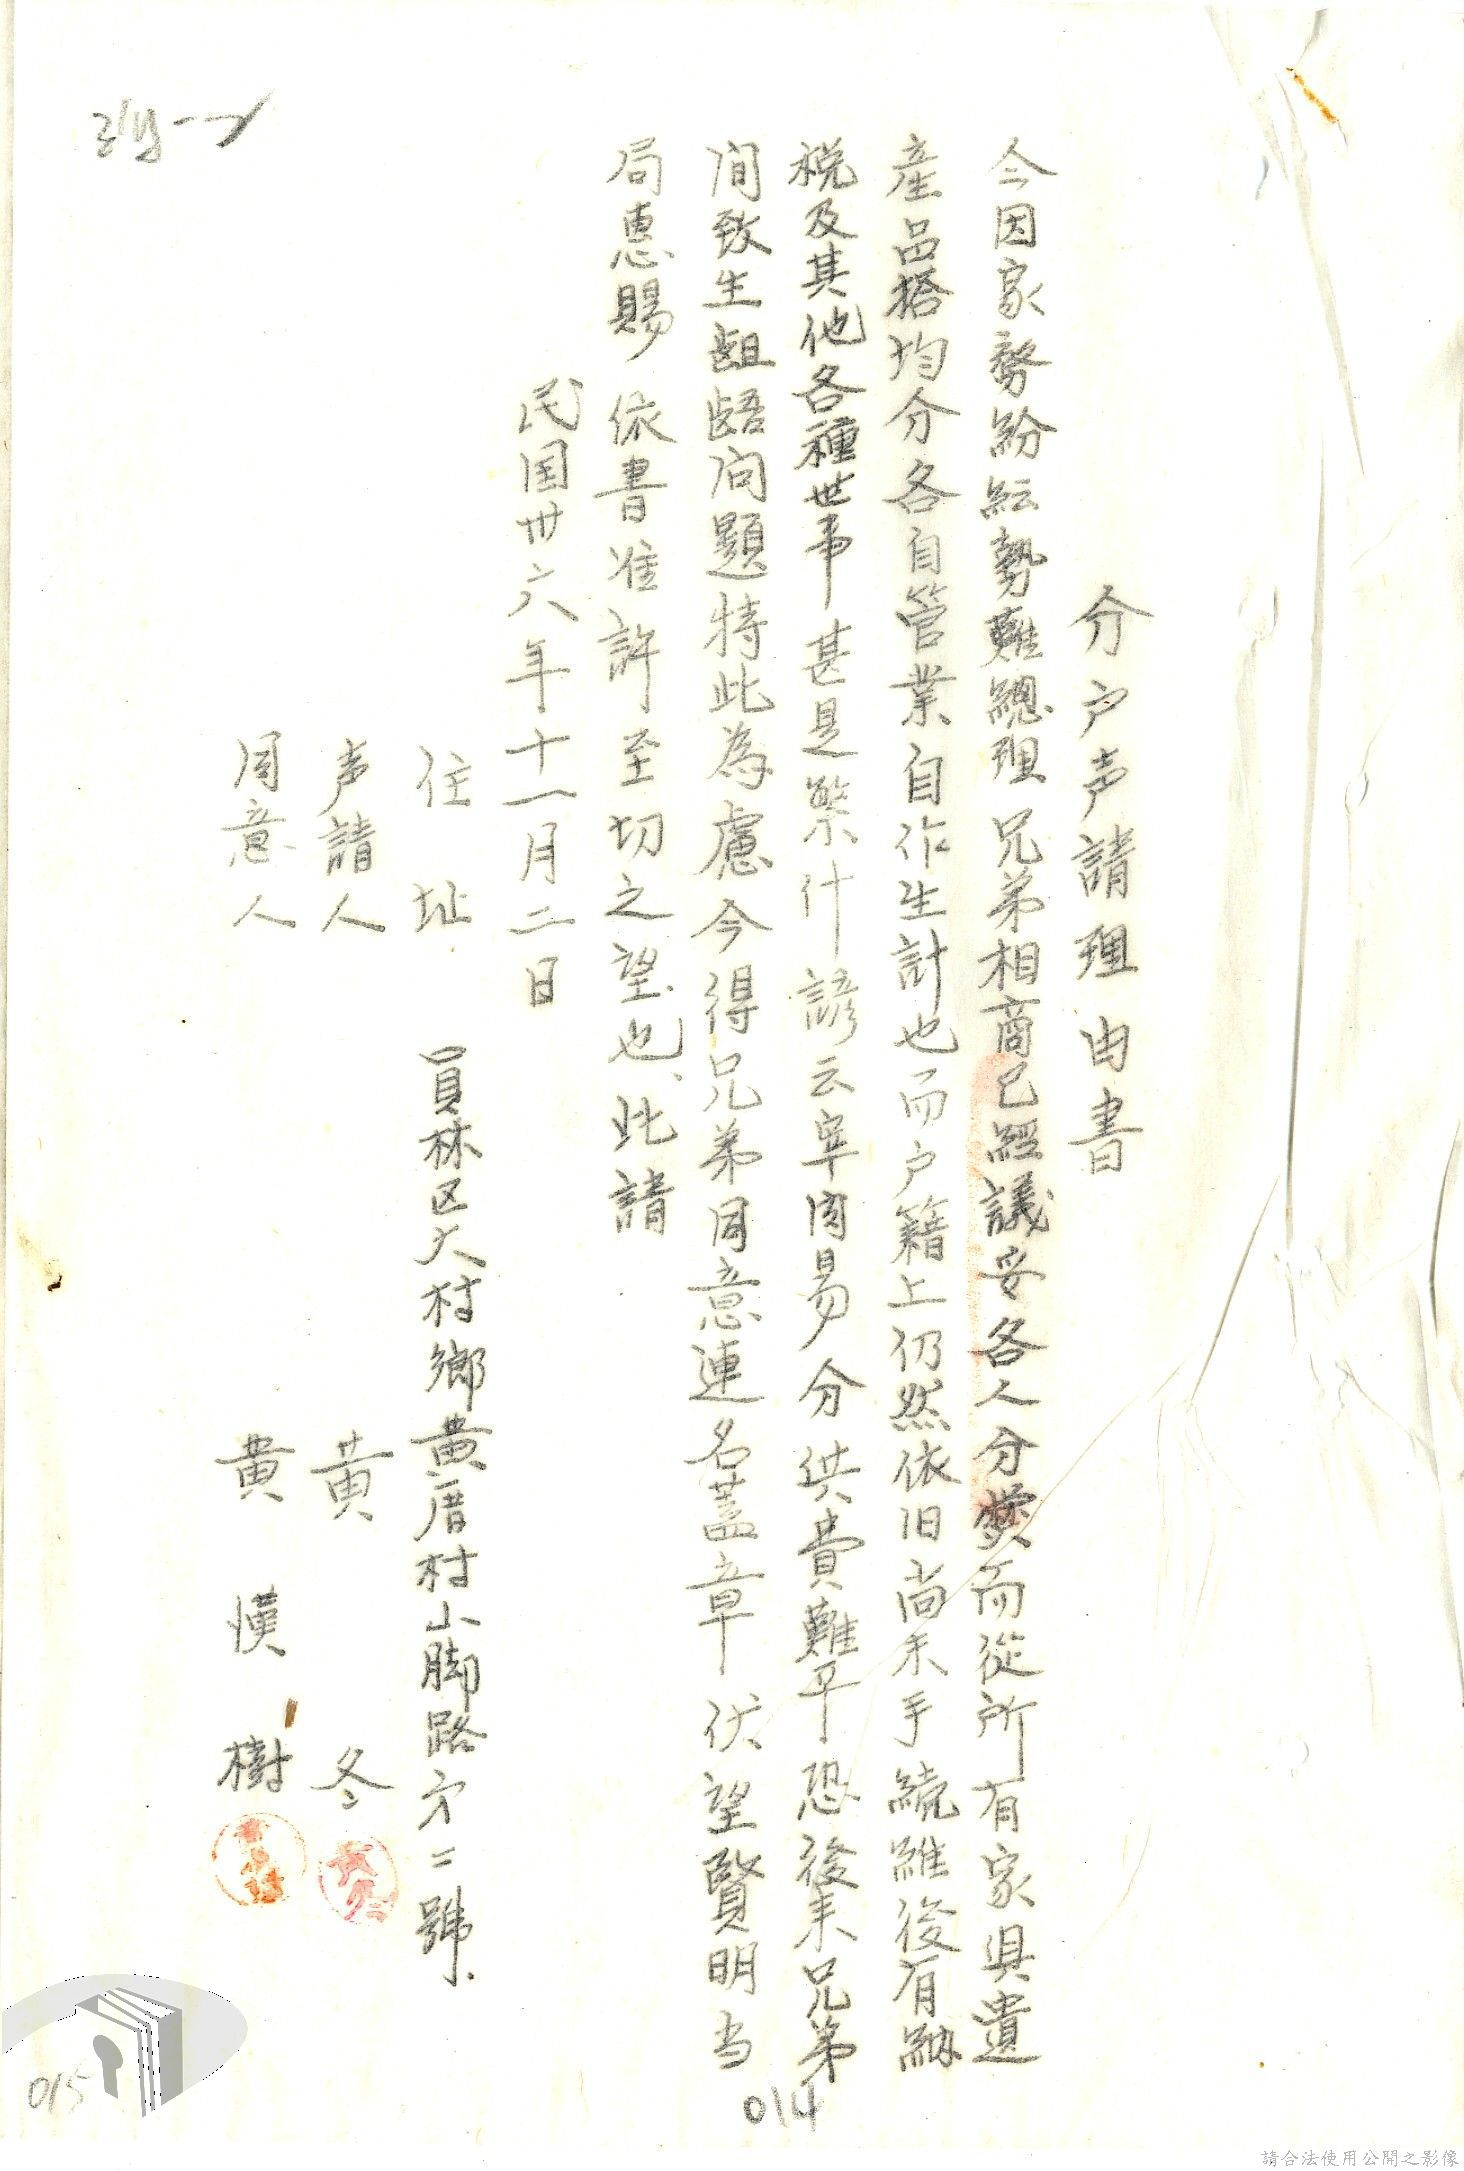 分户声請理由書
今因家務紛紜勢難總理兄弟相商已經議妥各人分爨而從所有家具遺
產品搭均分各自管業自作生計也而户籍上仍然依旧尚未手続雖後有納
税及其他各種世事甚是繁什諺云宰肉易分供費難平恐後来兄弟
间致生齟齬问題特此為慮今得兄弟同意連名蓋章伏望賢明当
局惠賜依書准許至切之望也、此請
民国卅六年十一月二日
住址 員林区大村鄉黄厝村山脚路方二號.
声請人 黄 冬
同意人 黄 漢 樹
014
015
請合法使用公開之影像